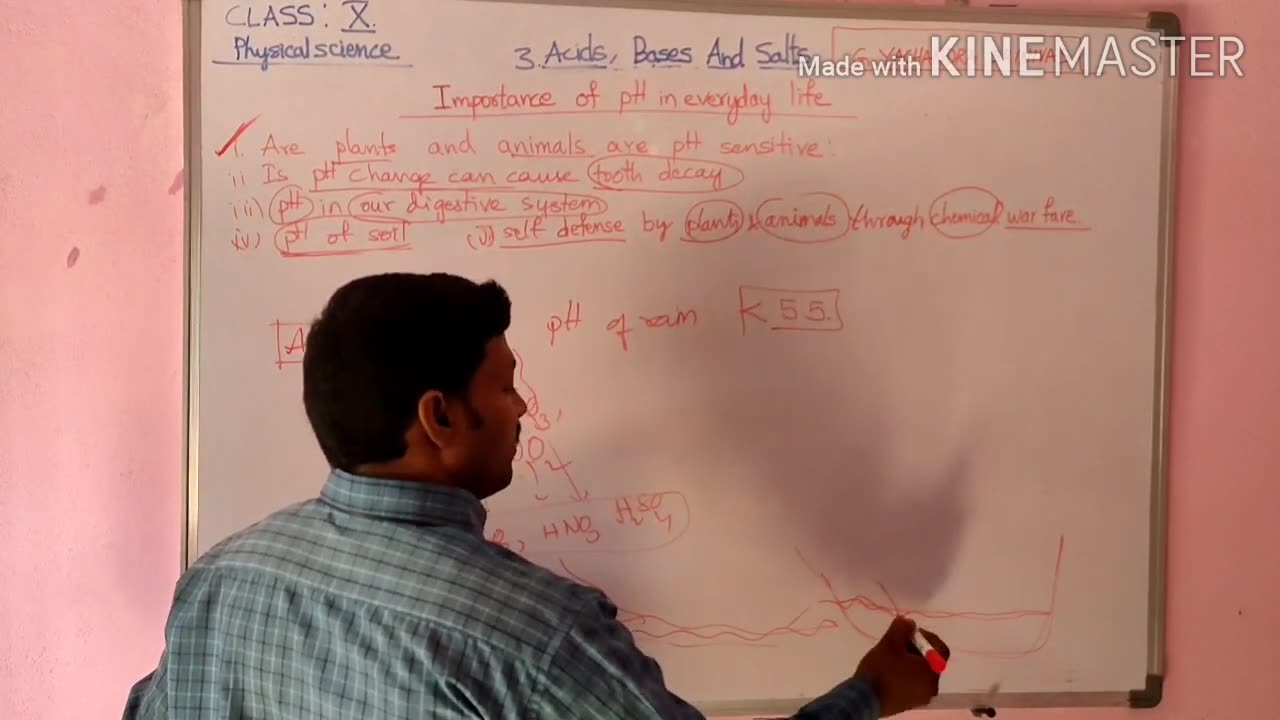 CLASS: X.
Physical science
3. Acids, Bases And Salts
Made with KINEMASTER
Importance of pH in everyday life
i. Are plants and animals are pH sensitive:
ii Is pH change can cause tooth decay
iii) pH in our digestive system
iv) pH of soil (v) self defense by plants & animals through chemical war fare.
pH of rain < 5 5.
HNO3 H2SO4